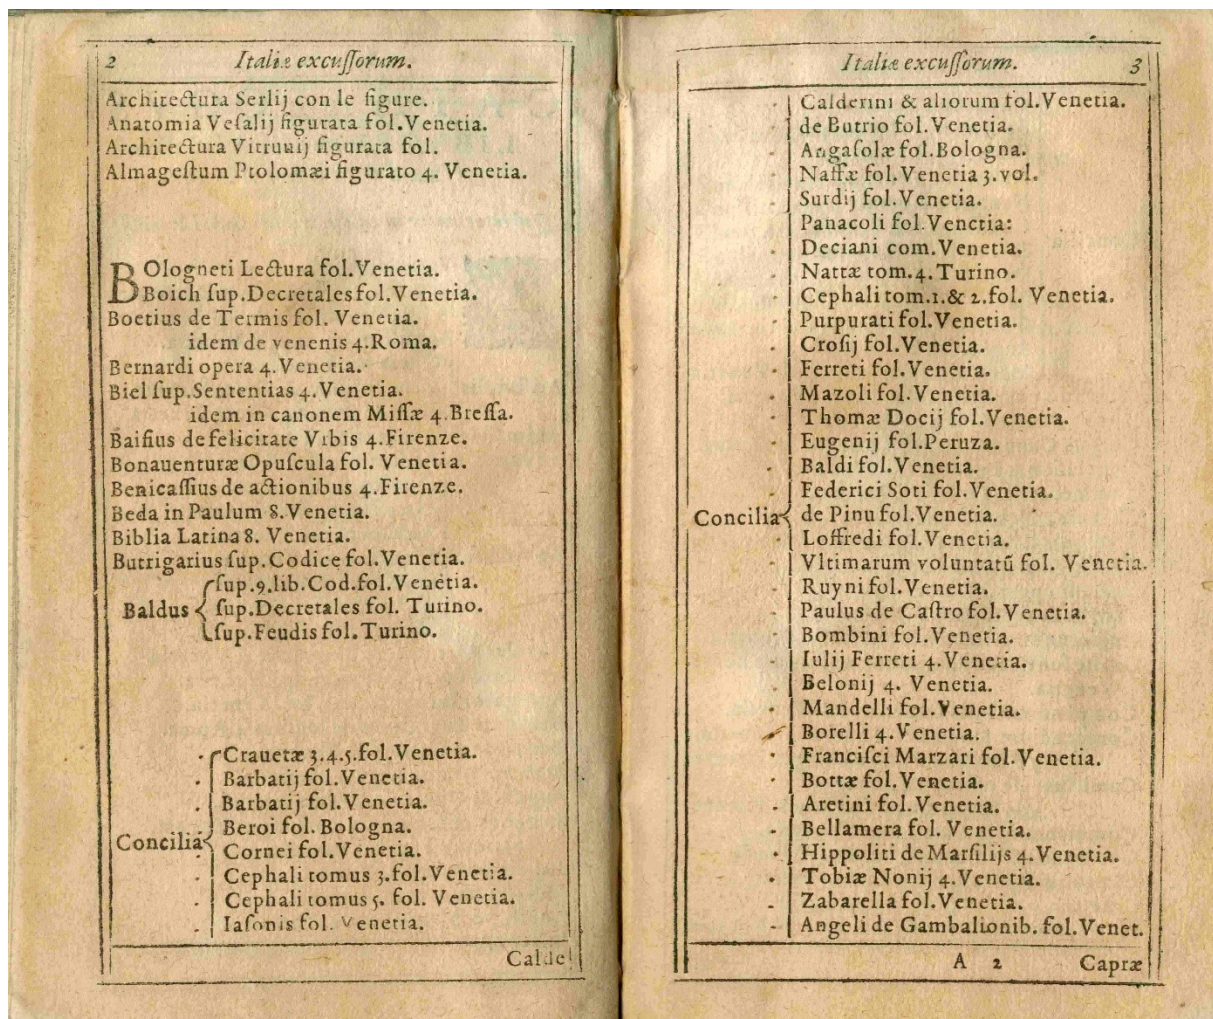 2 Italiæ excuſſorum.
Architectura Serlij con le figure.
Anatomia Veſalij figurata fol.Venetia.
Architectura Vitruuij figurata fol.
Almageſtum Ptolomæi figurato 4. Venetia.
BOlogneti Lectura fol.Venetia.
Boich ſup.Decretales fol.Venetia.
Boetius de Termis fol. Venetia.
idem de venenis 4.Roma.
Bernardi opera 4.Venetia.
Biel ſup.Sententias 4.Venetia.
idem in canonem Miſſæ 4.Breſſa.
Baifius de felicitate Vrbis 4.Firenze.
Bonauenturæ Opuſcula fol. Venetia.
Benicaſſius de actionibus 4.Firenze.
Beda in Paulum 8.Venetia.
Biblia Latina 8. Venetia.
Butrigarius ſup.Codice fol.Venetia.
ſup.9.lib.Cod.fol.Venetia.
Baldus ſup.Decretales fol. Turino.
ſup.Feudis fol.Turino.
Crauetæ 3.4.5.fol.Venetia.
Barbatij fol.Venetia.
Barbatij fol.Venetia.
Beroi fol.Bologna.
Concilia
Cornei fol.Venetia.
Cephali tomus 3.fol.Venetia.
Cephali tomus 5. fol. Venetia.
Iaſonis fol. Venetia.
Calde
Italiæ excuſſorum. 3
Calderini & aliorum fol.Venetia.
de Butrio fol.Venetia.
Angaſolæ fol.Bologna.
Naffæ fol.Venetia 3.vol.
Surdij fol.Venetia.
Panacoli fol.Venetia:
Deciani com.Venetia.
Nattæ tom.4.Turino.
Cephali tom.1.& 2.fol. Venetia.
Purpurati fol.Venetia.
Croſij fol.Venetia.
Ferreti fol.Venetia.
Mazoli fol.Venetia.
Thomæ Docij fol.Venetia.
Eugenij fol.Peruza.
Baldi fol.Venetia.
Federici Soti fol.Venetia.
Concilia de Pinu fol.Venetia.
Loffredi fol.Venetia.
Vltimarum voluntatũ fol. Venetia.
Ruyni fol.Venetia.
Paulus de Caſtro fol.Venetia.
Bombini fol.Venetia.
Iulij Ferreti 4.Venetia.
Belonij 4. Venetia.
Mandelli fol.Venetia.
Borelli 4.Venetia.
Franciſci Marzari fol.Venetia.
Bottæ fol.Venetia.
Aretini fol.Venetia.
Bellamera fol. Venetia.
Hippoliti de Marſilijs 4.Venetia.
Tobiæ Nonij 4.Venetia.
Zabarella fol.Venetia.
Angeli de Gambalionib. fol.Venet.
A 2 Capræ